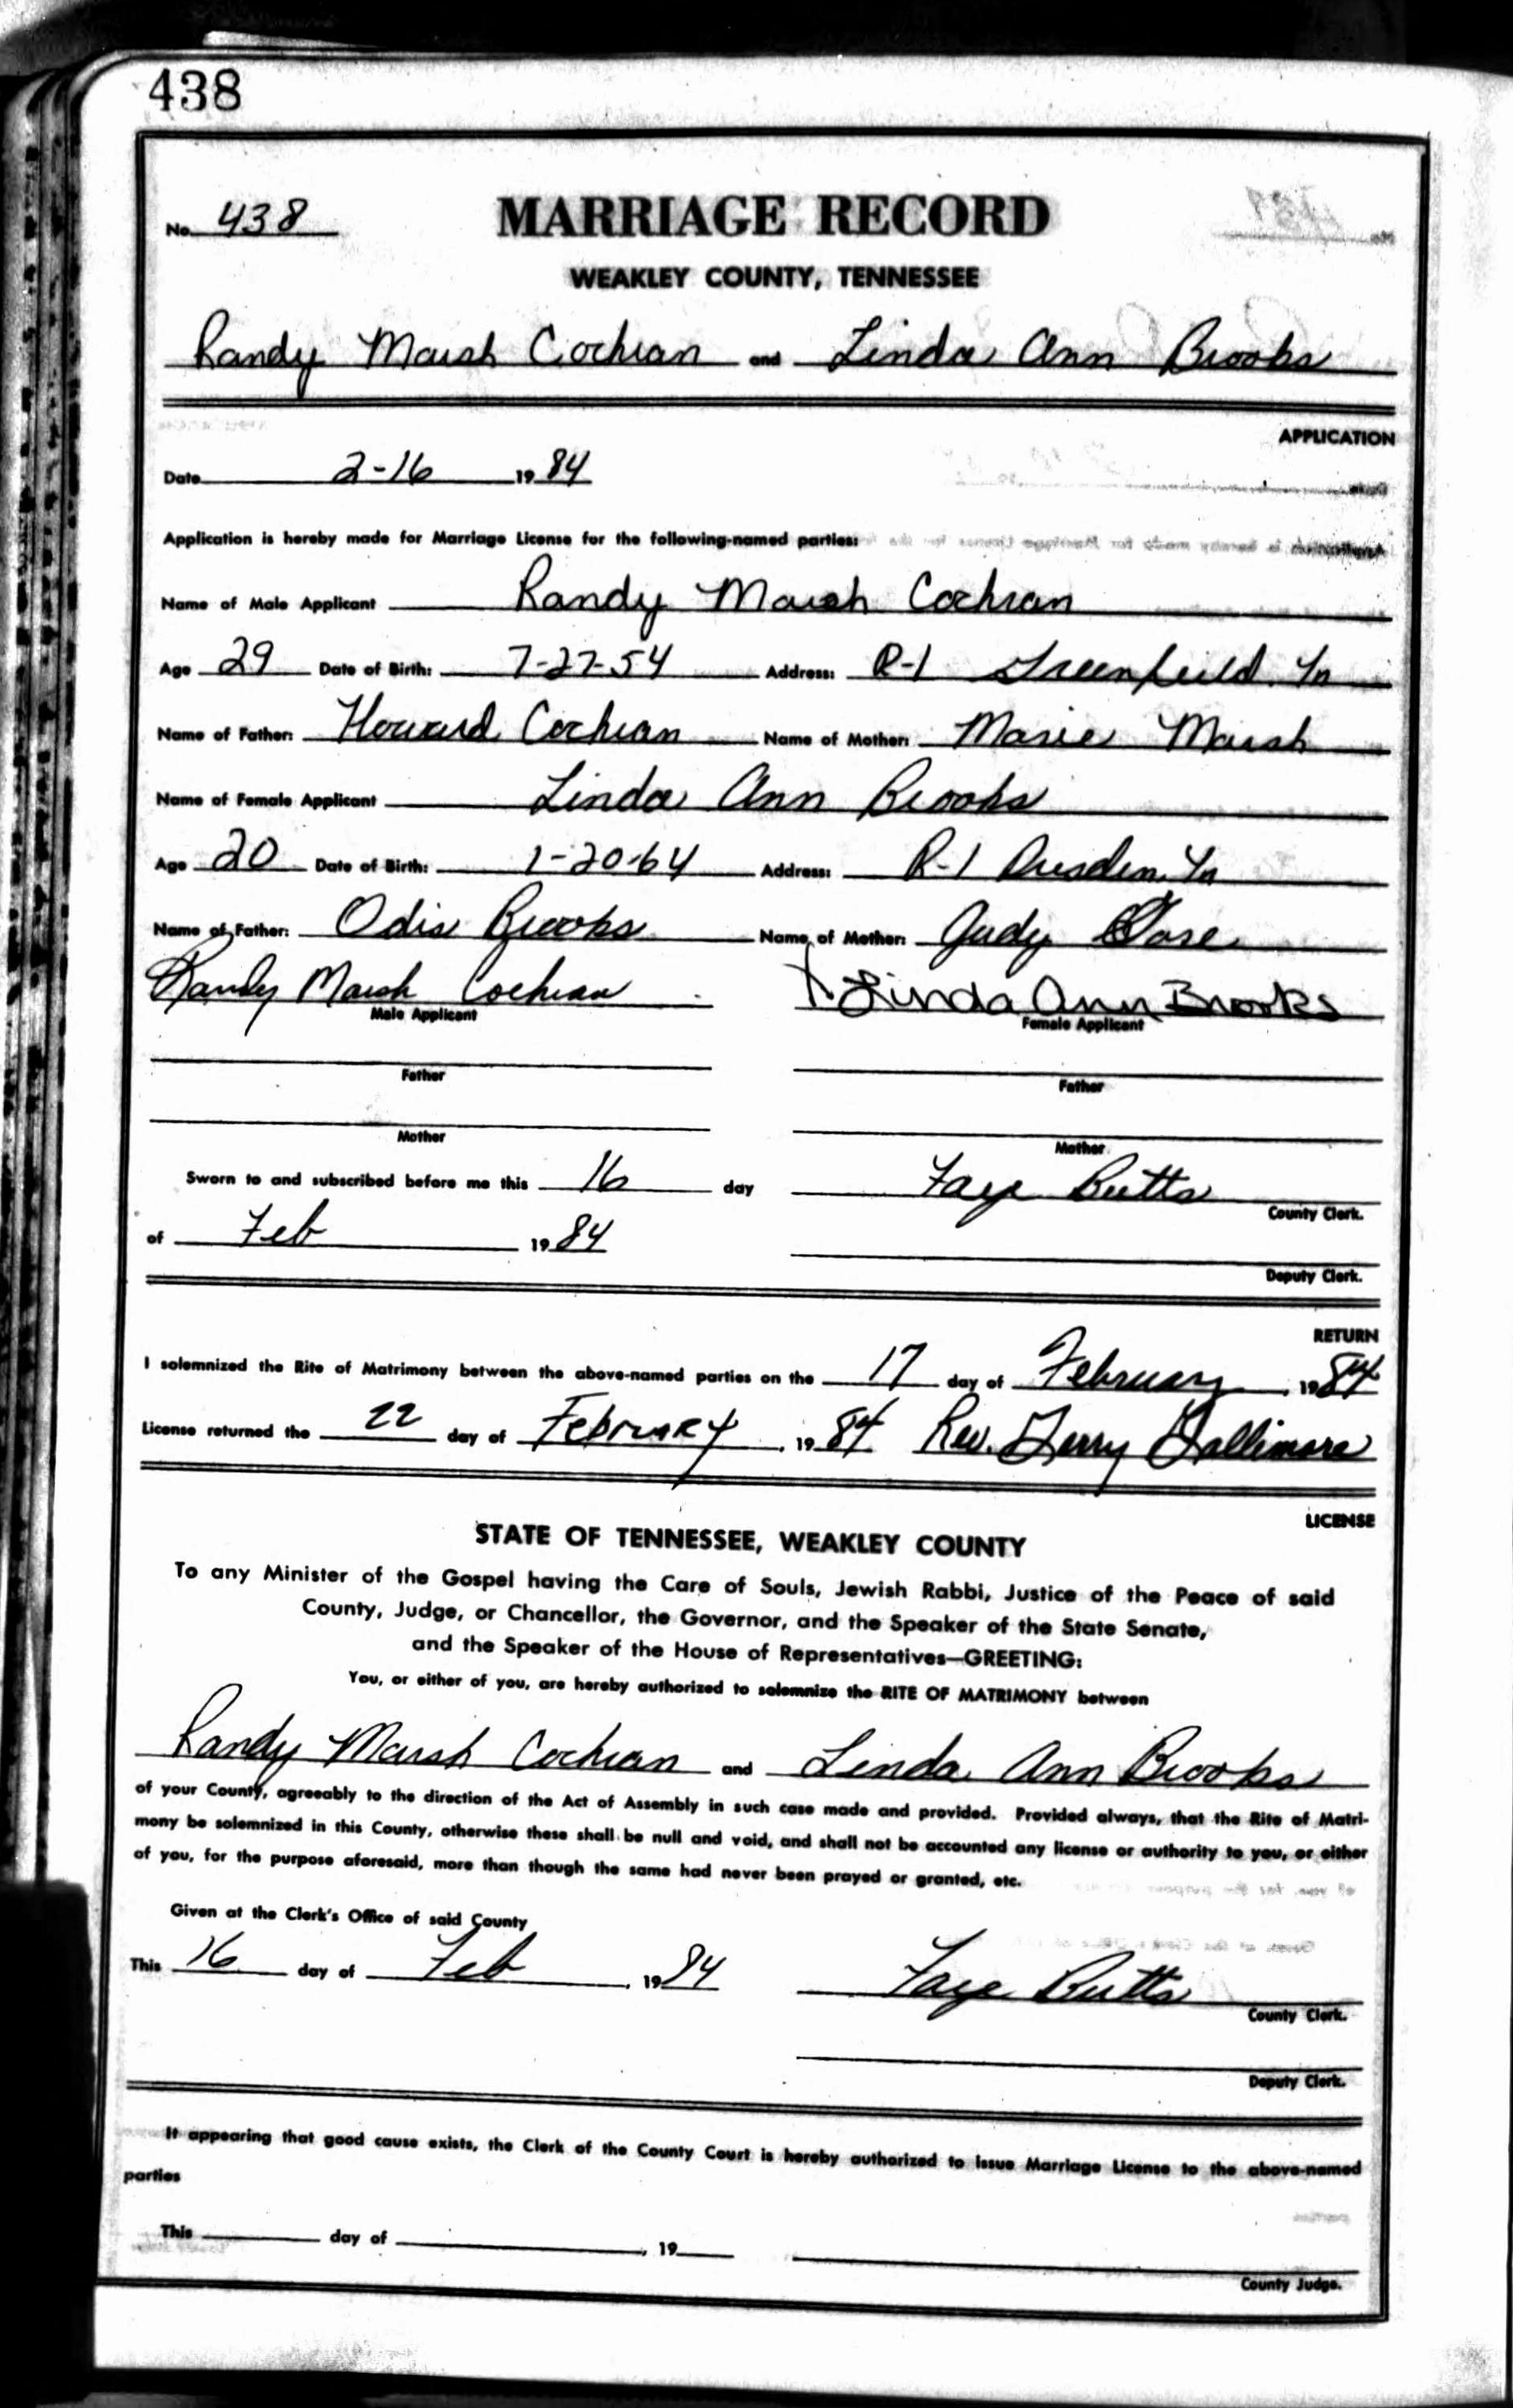 438
No. 438 MARRIAGE RECORD
WEAKLEY COUNTY, TENNESSEE
Randy Marsh Cochran and Linda Ann Brooks
APPLICATION
Date 2-16 19 84
Application is hereby made for Marriage License for the following-named parties:
Name of Male Applicant Randy Marsh Cochran
Age 29 Date of Birth: 7-27-54 Address: R-1 Greenfield Tn
Name of Father: Howard Cochran Name of Mother: Marie Marsh
Name of Female Applicant Linda Ann Brooks
Age 20 Date of Birth: 1-20-64 Address: R-1 Dresden, Tn
Name of Father: Odis Brooks Name of Mother: Judy
Randy Marsh Cochran Linda Ann Brooks
Male Applicant Female Applicant
Father Father
Mother Mother
Sworn to and subscribed before me this 16 day Faye Butts
County Clerk.
of Feb 19 84
Deputy Clerk.
RETURN
I solemnized the Rite of Matrimony between the above-named parties on the 17 day of February, 19 84
License returned the 22 day of February, 19 84 Rev. Terry Gallimore
LICENSE
STATE OF TENNESSEE, WEAKLEY COUNTY
To any Minister of the Gospel having the Care of Souls, Jewish Rabbi, Justice of the Peace of said
County, Judge, or Chancellor, the Governor, and the Speaker of the State Senate,
and the Speaker of the House of Representatives—GREETING:
You, or either of you, are hereby authorized to solemnize the RITE OF MATRIMONY between
Randy Marsh Cochran and Linda Ann Brooks
of your County, agreeably to the direction of the Act of Assembly in such case made and provided. Provided always, that the Rite of Matri-
mony be solemnized in this County, otherwise these shall be null and void, and shall not be accounted any license or authority to you, or either
of you, for the purpose aforesaid, more than though the same had never been prayed or granted, etc.
Given at the Clerk's Office of said County
This 16 day of Feb, 19 84 Faye Butts
County Clerk.
Deputy Clerk.
It appearing that good cause exists, the Clerk of the County Court is hereby authorized to issue Marriage License to the above-named
parties
This day of , 19
County Judge.